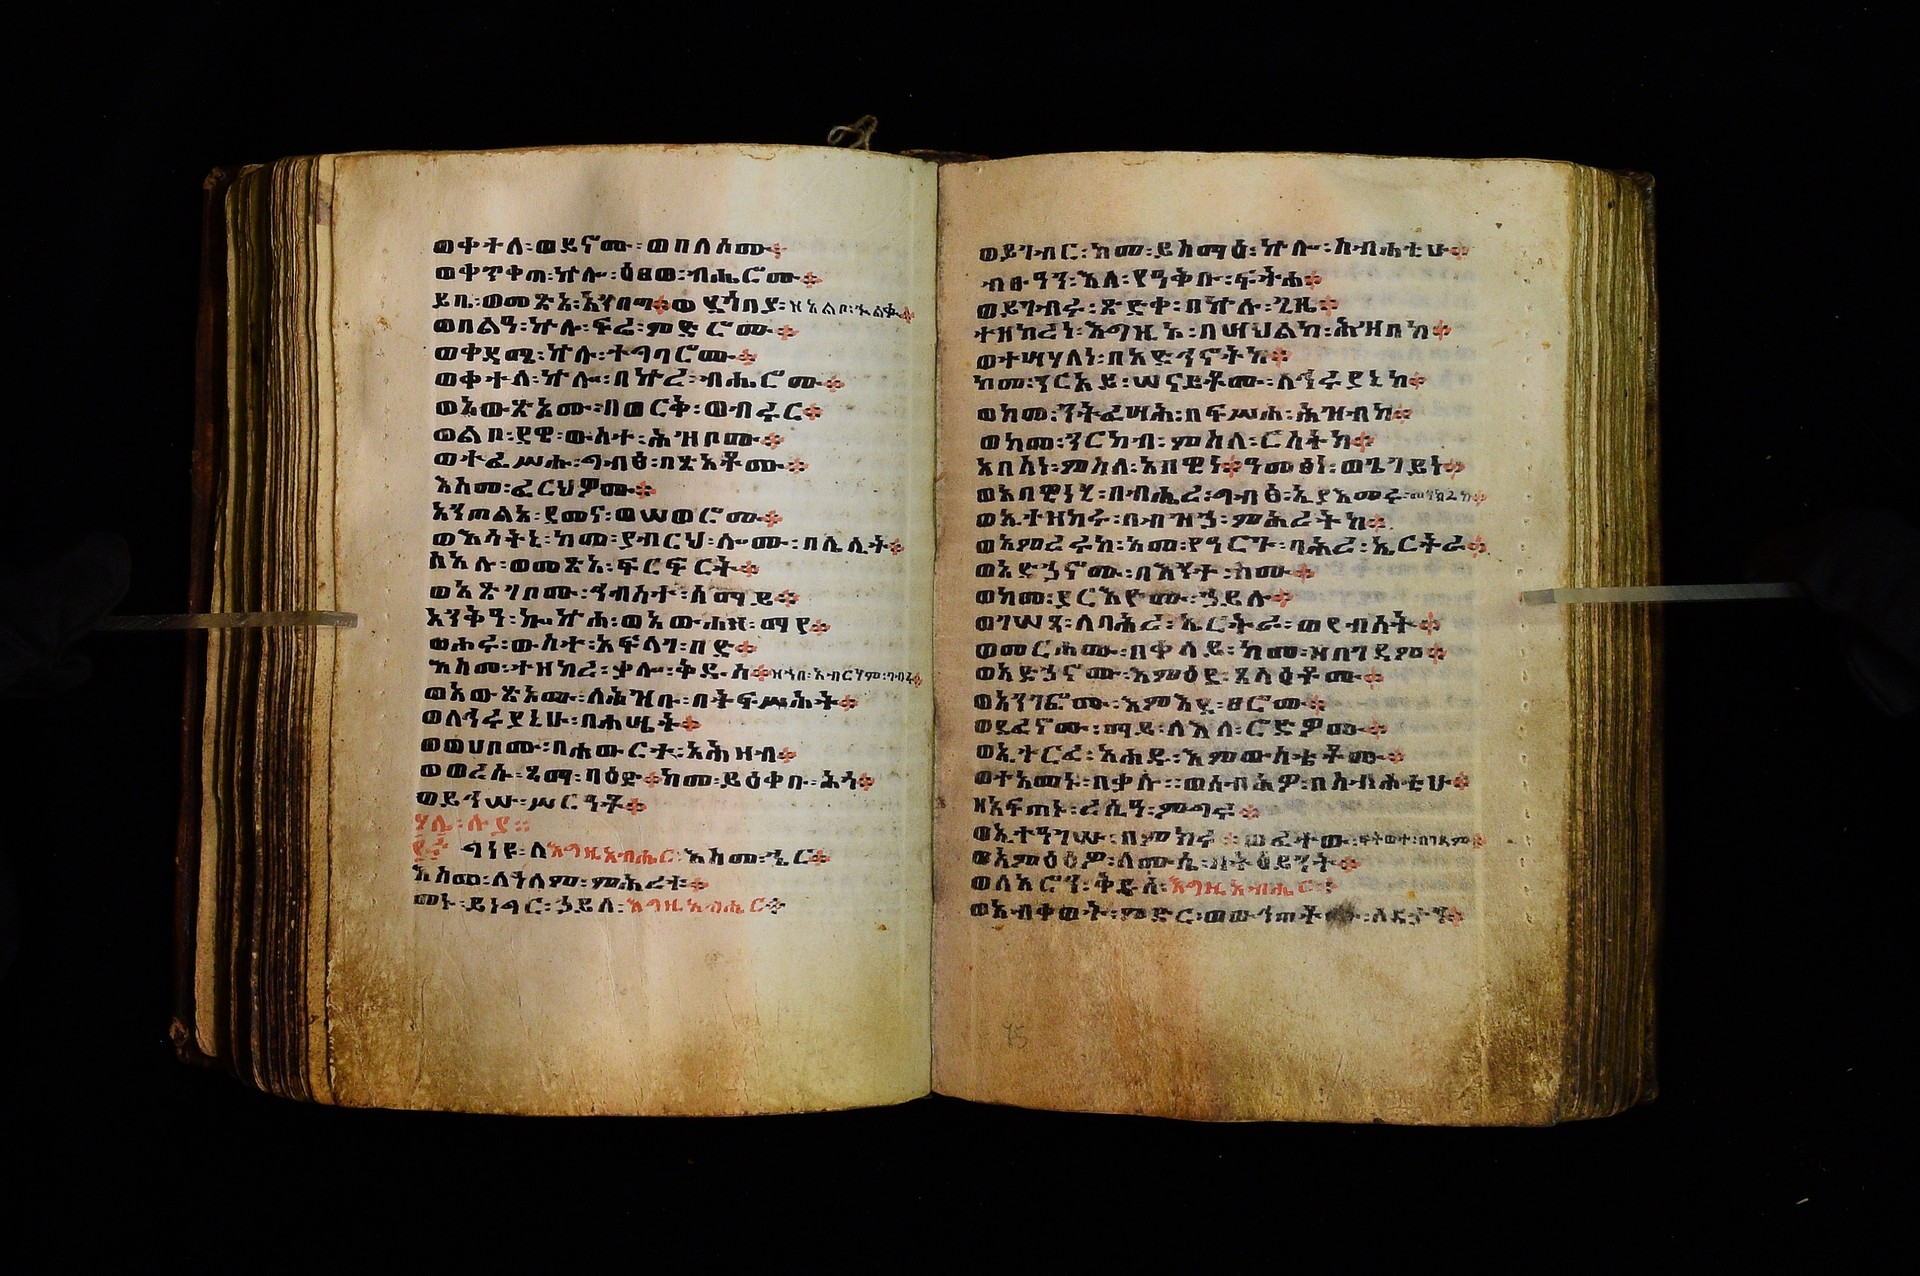 ወቀተለ፡ወይኖሙ፡ወበለሶሙ፨
ወቀጥቀጠ፡ኵሎ፡ዕፀወ፡ብሔሮሙ፨
ይቤ፡ወመጽአ፡አንበጣ፨ወደጎብያ፡ዘአልቦ፡ኍልቈ፨
ወበልዓ፡ኵሎ፡ፍሬ፡ምድሮሙ፨
ወቀደሚ፡ኵሉ፡ተግባሮሙ፨
ወቀተለ፡ኵሎ፡በኵረ፡ብሔሮሙ፨
ወአውጽኦሙ፡በወርቅ፡ወብሩር፨
ወልቦ፡ደዌ፡ውስተ፡ሕዝቦሙ፨
ወተፈሥሐ፡ግብፅ፡በጸአቶሙ፨
እስመ፡ፈርህዎሙ፨
አንጦልአ፡ደመና፡ወሠወሮሙ፨
ወእሳትኒ፡ከመ፡ያብርህ፡ሎሙ፡በሌሊት፨
ሰአሉ፡ወመጽአ፡ፍርፍርት፨
ወአጽገቦሙ፡ኅብስተ፡ሰማይ፨
አንቅዓ፡ኰኵሐ፡ወአውሐዘ፡ማየ፨
ወሖሩ፡ውስተ፡አፍላገ፡በድ፨
እስመ፡ተዘከረ፡ቃሎ፡ቅዱሰ፨ዘኀበ፡አብርሃም፡ገብሩ፨
ወአውጽአሙ፡ለሕዝቡ፡በትፍሥሕት፨
ወለኅሩያኒሁ፡በሐሤት፨
ወወሀቦሙ፡በሐውርተ፡አሕዛብ፨
ወወረሱ፡ጻማ፡ባዕድ፨ከመ፡ይዕቀቡ፡ሕጎ፨
ወይኅሡ፡ሥርዓቶ፨
ሃሌ፡ሉያ፡፡
፻፭ ግነዩ፡ለእግዚአብሔር፡እስመ፡ኄር፨
እስመ፡ለዓለም፡ምሕረቱ፨
መኑ፡ይነግር፡ኃይለ፡እግዚአብሔር፨
ወይገብር፡ከመ፡ይስማዕ፡ኵሎ፡ስብሐቲሁ፨
ብፁዓን፡እለ፡የዓቅቡ፡ፍትሐ፨
ወይገብሩ፡ጽድቀ፡በኵሉ፡ጊዜ፨
ተዘከረነ፡እግዚኦ፡በሣህልከ፡ሕዝበከ፨
ወተሣሃለነ፡በአድኅኖትከ፨
ከመ፡ንርአይ፡ሠናይቶሙ፡ለኅሩያኒከ፨
ወከመ፡ንትፈሣሕ፡በፍሥሐ፡ሕዝብከ፨
ወከመ፡ንርከብ፡ምስለ፡ርስትከ፨
አበስነ፡ምስለ፡አበዊነ፨ዓመፅነ፡ወጌገይነ፨
ወአበዊነሂ፡በብሔረ፡ግብፅ፡ኢያእመሩ፡መንክረከ፨
ወኢተዘከሩ፡በብዝኃ፡ምሕረትከ፨
ወአምረሩከ፡አመ፡የዓርጉ፡ባሕረ፡ኤርትራ፨
ወአድኃኖሙ፡በእንተ፡ስሙ፨
ወከመ፡ያርእዮሙ፡ኃይሉ፨
ወገሠጻ፡ለባሕረ፡ኤርትራ፡ወየብሰት፨
ወመርሖሙ፡በቀላይ፡ከመ፡ዘበገዳም፨
ወአድኃኖሙ፡እምዕደ፡ጸላዕቶሙ፨
ወአንገፎሙ፡እምእደ፡ፀሮሙ፨
ወደፈኖሙ፡ማይ፡ለእለ፡ሮድዎሙ፨
ወኢተርፈ፡አሐዱ፡እምውስቴቶሙ፨
ወተአመኑ፡በቃሉ፡፡ወሰብሕዎ፡በስብሐቲሁ፨
ዘአፍጠኑ፡ረሲዓ፡ምግባሩ፨
ወኢተዓገሡ፡በምክሩ፨ወፈተው፡ፍትወተ፡በገዳም፨
ወአምዕዕዎ፡ለሙሴ፡በትዕይንት፨
ወለአሮን፡ቅዱሰ፡እግዚአብሔር፨
ወአብቀወት፡ምድር፡ወውኅጠቶ፡ለዳታን፨
75